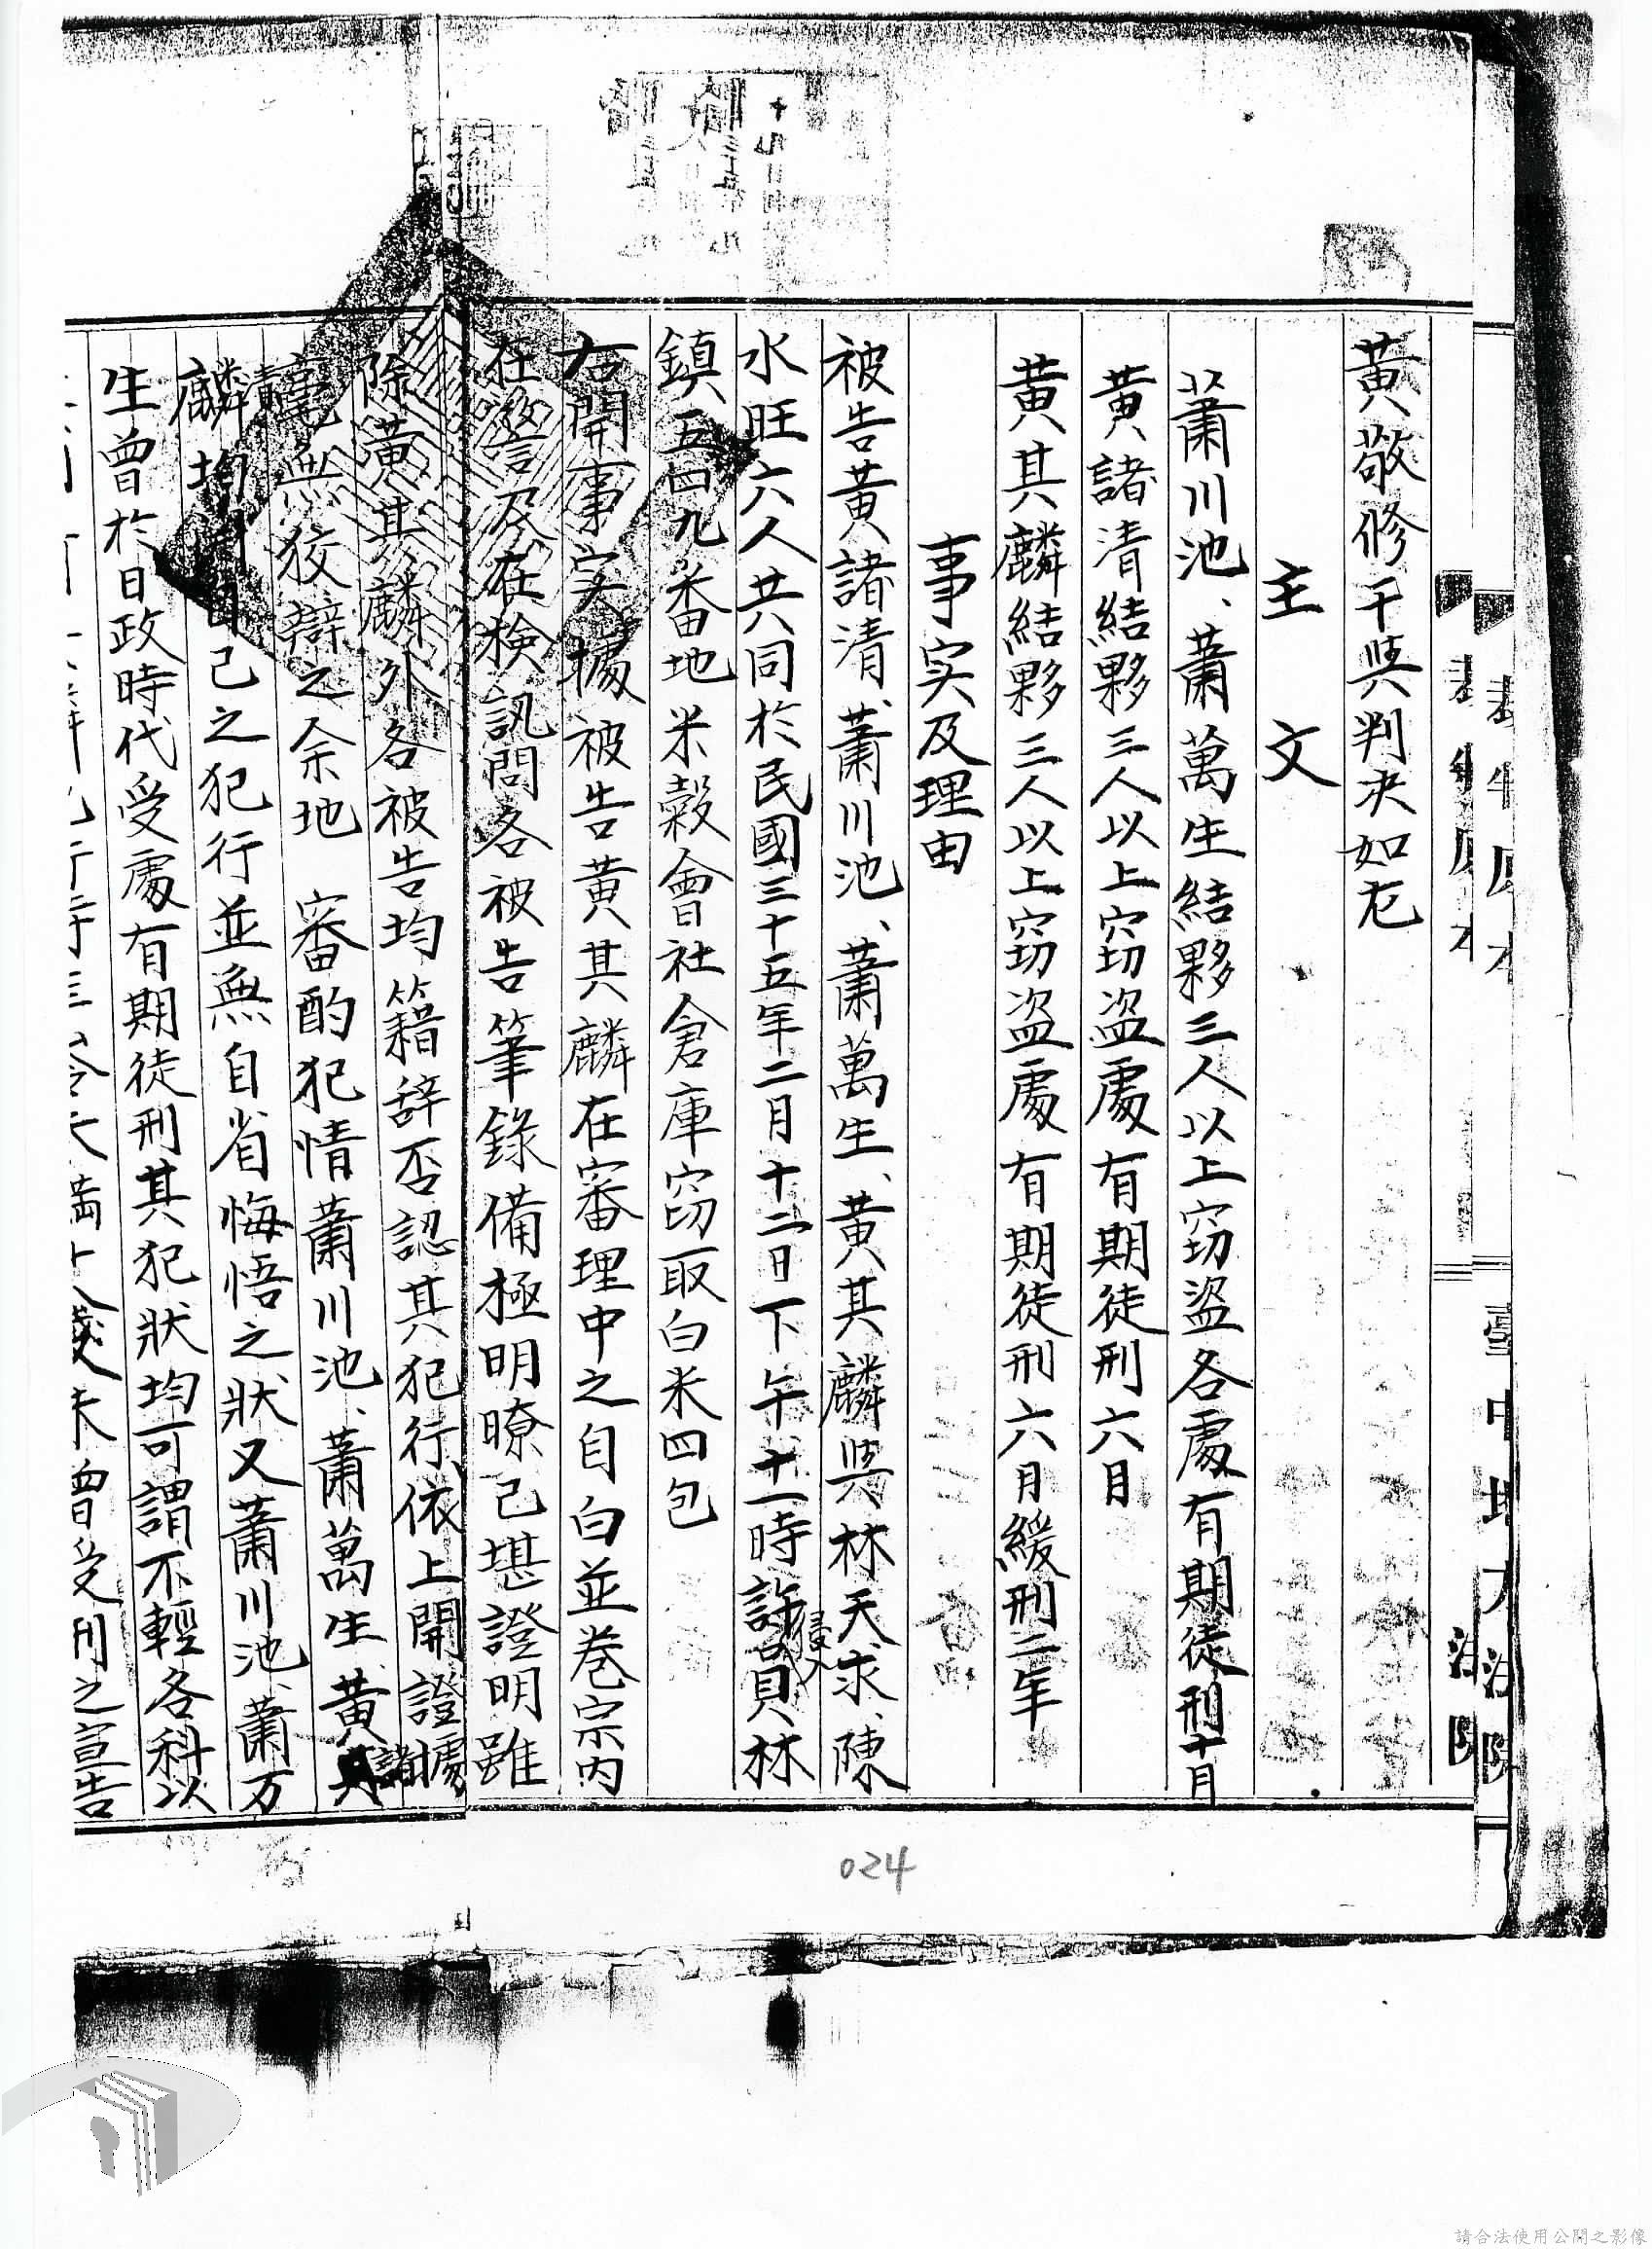 黃敬修干與判決如左
主文
蕭川池、蕭萬生結夥三人以上窃盜各處有期徒刑十月
黃諸清結夥三人以上窃盗處有期徒刑六月
黃其麟結夥三人以上窃盗處有期徒刑六月緩刑二年
事実及理由
被告黃諸清、蕭川池、蕭萬生、黃其麟與林天求、陳
水旺六人共同於民國三十五年二月十二日下午十一時許侵入員林
鎮五四九番地米穀會社倉庫窃取白米四包
右開事実據被告黃其麟在審理中之自白並巻宗内
在警及在検訊問各被告筆錄備極明暸已堪證明雖
除黃其麟外各被告均籍辞否認其犯行、依上開證據
毫無狡辯之余地 審酌犯情蕭川池、蕭萬生、黃諸清
麟均 自己之犯行並無自省悔悟之狀又蕭川池、蕭万
生曾於日政時代受處有期徒刑其犯狀均可謂不輕各科以
未曾受刑之宣告
臺中地方法院
024
請合法使用公開之影像